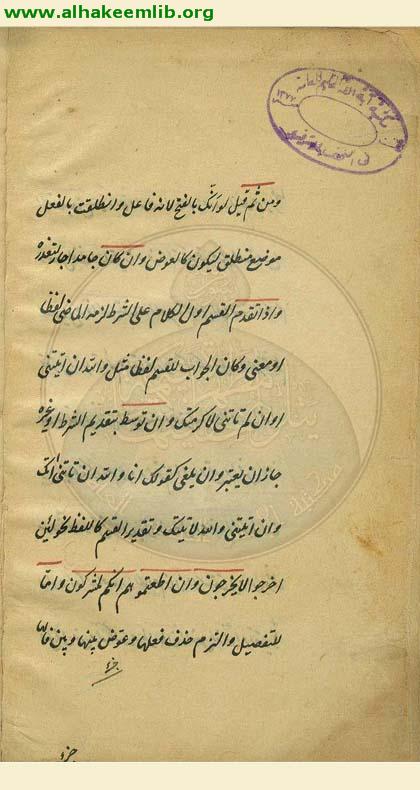 www.alhakeemlib.org
ومن ثم قيل لو انك بالفتح لانه فاعل وانطلقت بالفعل
موضع منطلق ليكون كالعوض وان كان جامدا جاز لتعذره
واذا تقدم القسم اول الكلام على الشرط لزمه الماضى لفظا
او معنى وكان الجواب للقسم لفظا مثل والله ان اتيتنى
او ان لم تاتنى لاكرمتك وان توسط بتقديم الشرط او غيره
جاز ان يعتبر وان يلغى كقولك انا والله ان تاتنى آتك
وان اتيتنى والله لاتيتك وتقدير القسم كاللفظ نحو لئن
اخرجوا لا يخرجون وان اطعتموهم انكم لمشركون واما
للتفصيل والتزم حذف فعلها وعوض بينها وبين فائها
جزء
جزء